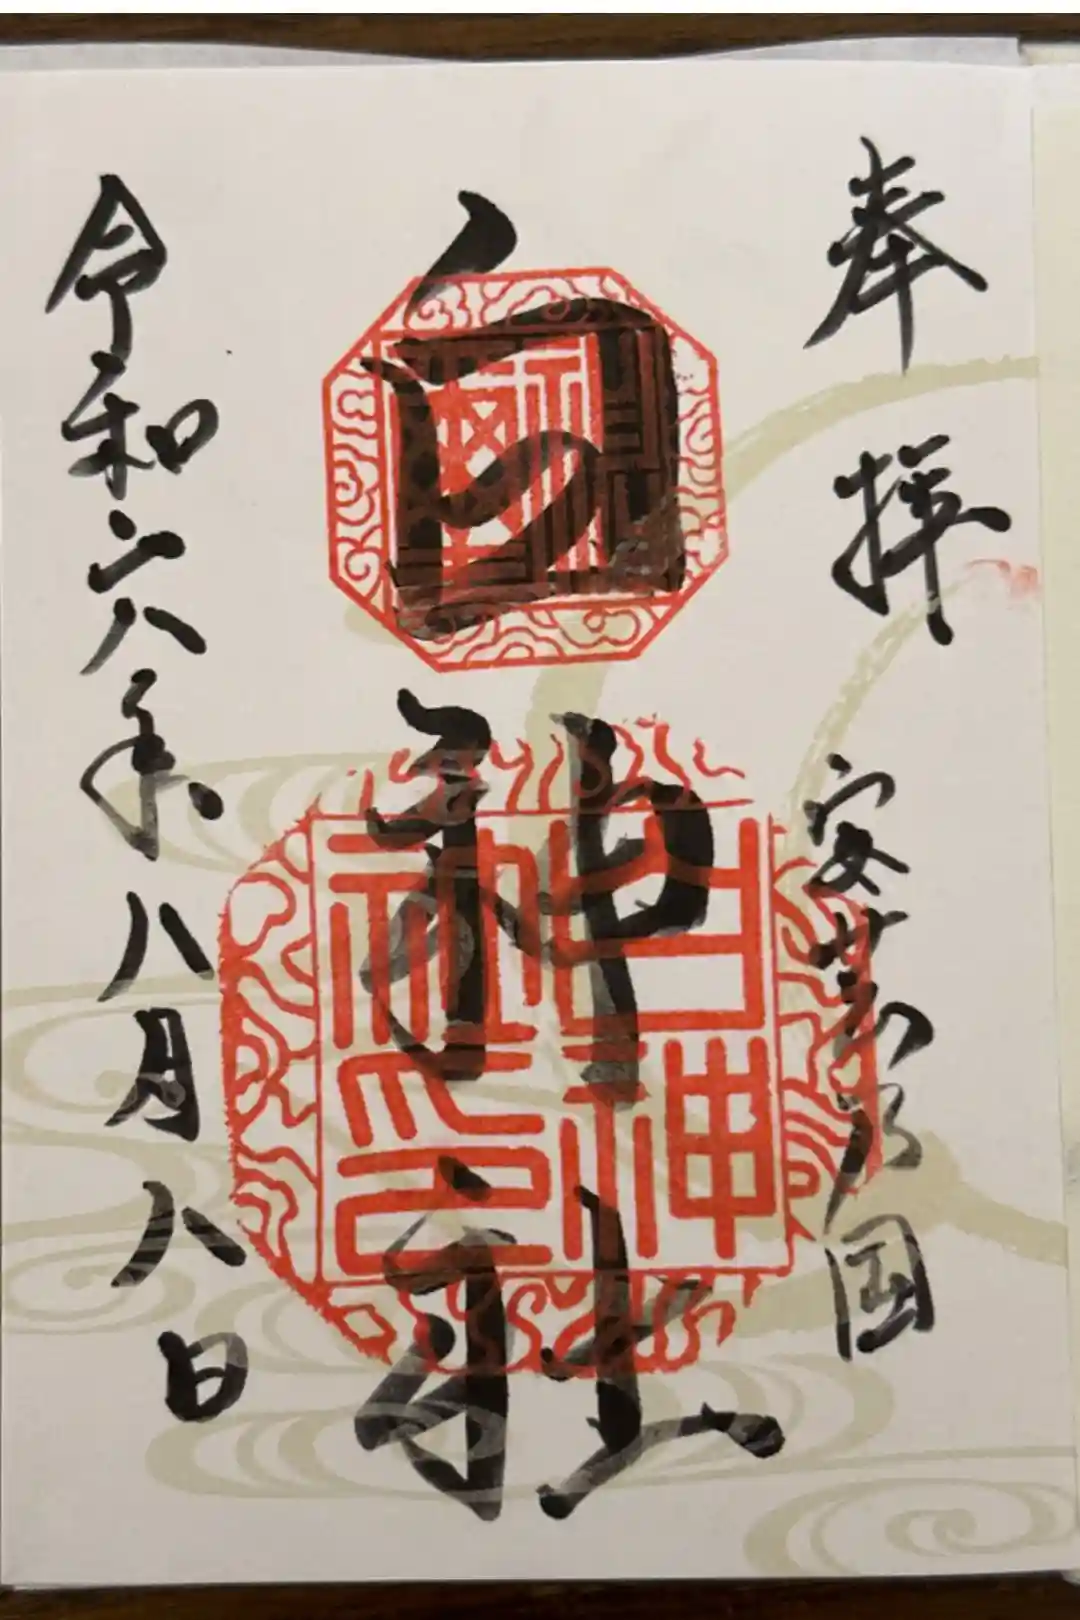 奉拝 安芸乃国
白神社
白神社印
令和六年八月八日